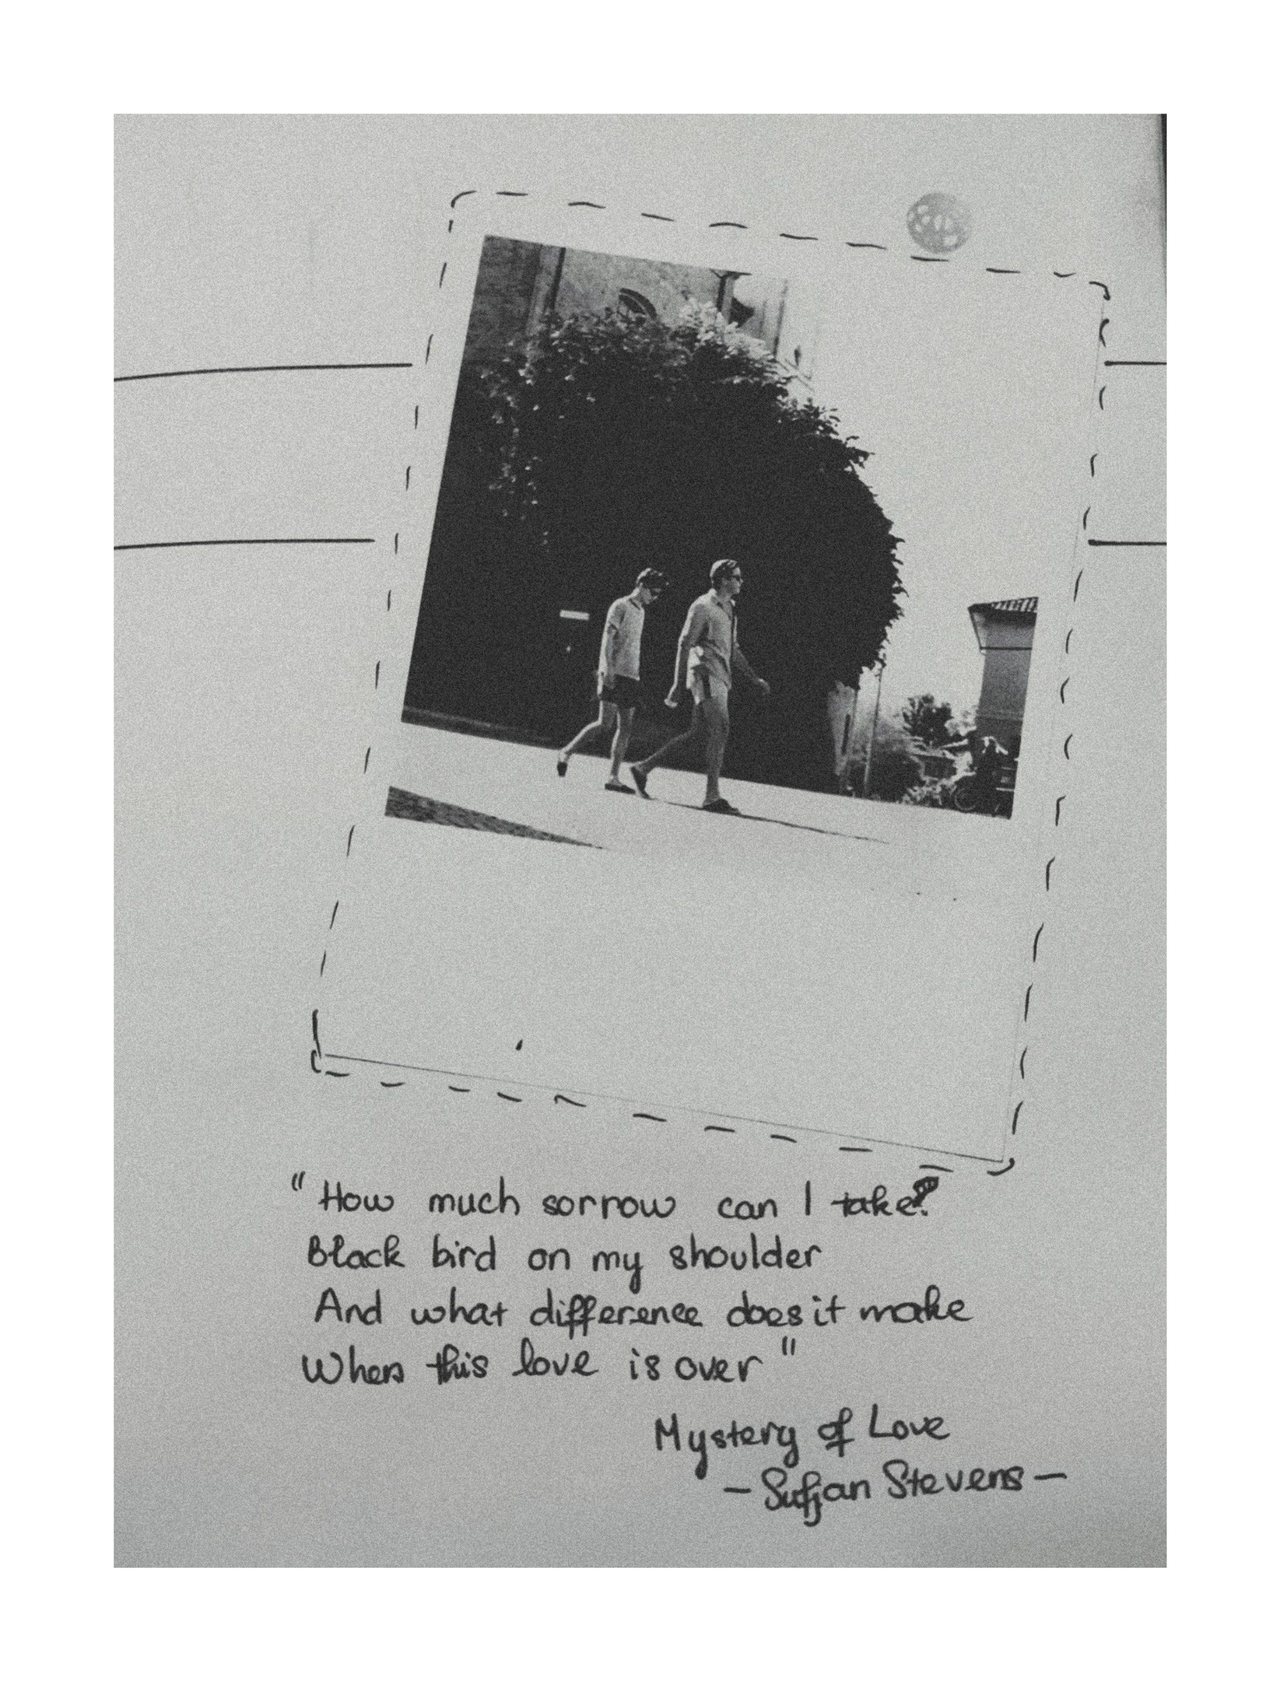 "How much sorrow can I take?
Black bird on my shoulder
And what difference does it make
When this love is over"
Mystery of Love
- Sufjan Stevens -